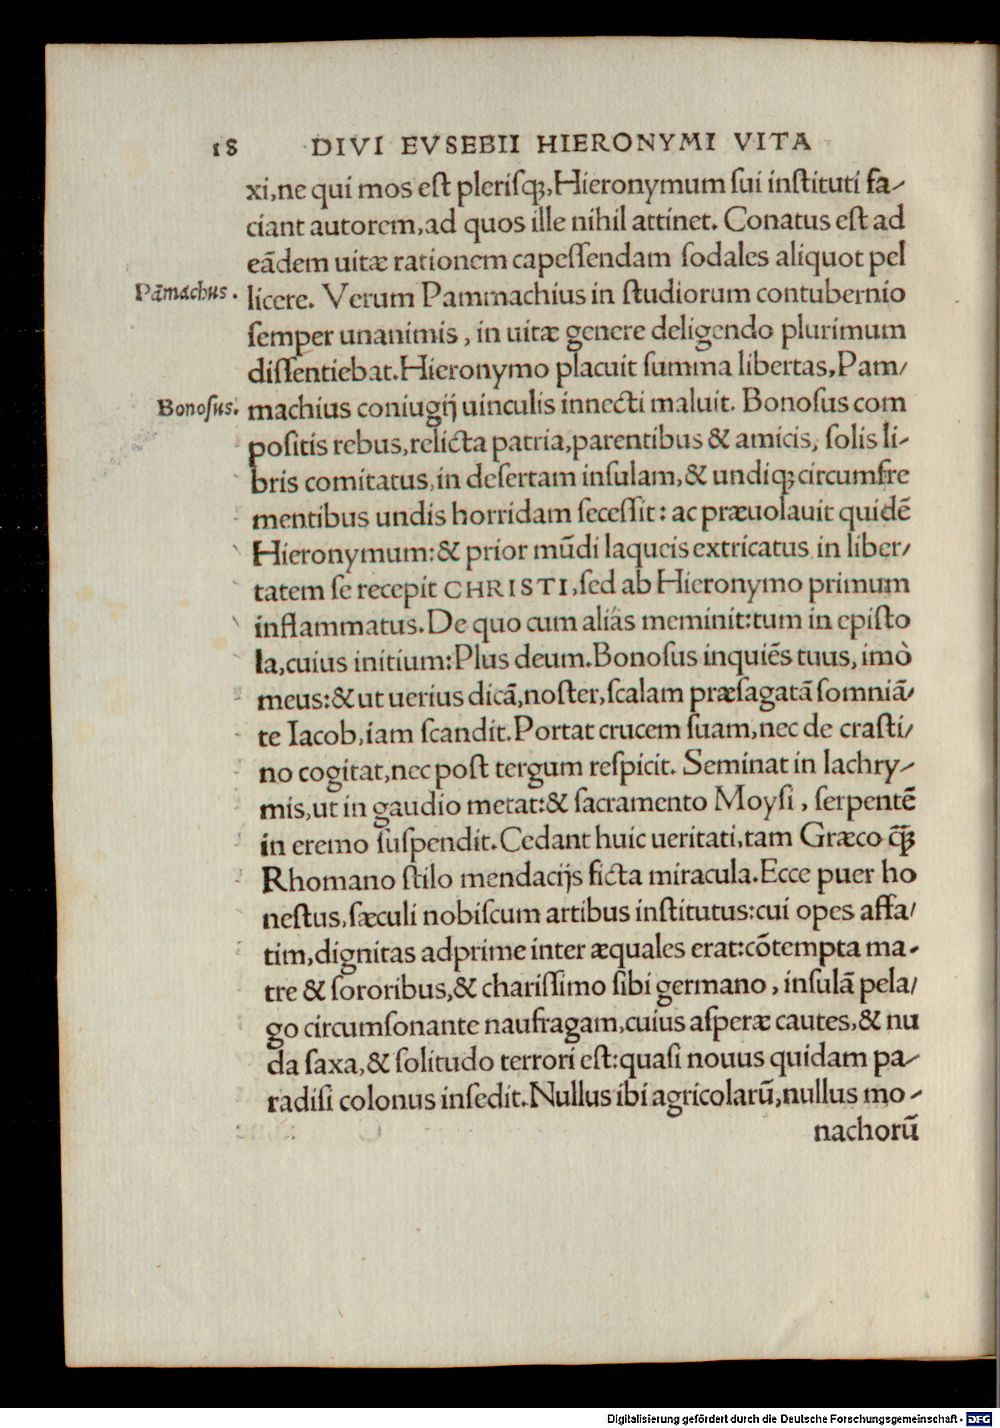 18 DIVI EVSEBII HIERONYMI VITA
xi,ne qui mos est pleriſq;,Hieronymum ſui inſtituti fa-
ciant autorem,ad quos ille nihil attinet. Conatus eſt ad
eãdem uitæ rationem capeſſendam ſodales aliquot pel
Pãmachus.
licere. Verum Pammachius in ſtudiorum contubernio
ſemper unanimis, in uitæ genere deligendo plurimum
diſſentiebat.Hieronymo placuit ſumma libertas,Pam/
Bonoſus.
machius coniugij uinculis innecti maluit. Bonoſus com
poſitis rebus,relicta patria,parentibus & amicis, ſolis li-
bris comitatus,in deſertam inſulam,& undiq; circumfre
mentibus undis horridam ſeceſſit: ac præuolauit quidẽ
Hieronymum:& prior mũdi laqueis extricatus in liber/
tatem ſe recepit CHRISTI,ſed ab Hieronymo primum
inflammatus.De quo cum aliâs meminit:tum in epiſto
la,cuius initium:Plus deum.Bonoſus inquiẽs tuus, imò
meus:& ut uerius dicã,noſter,ſcalam præſagatã ſomniã/
te Iacob,iam ſcandit.Portat crucem ſuam,nec de craſti/
no cogitat,nec poſt tergum reſpicit. Seminat in lachry-
mis,ut in gaudio metat:& ſacramento Moyſi, ſerpentẽ
in eremo ſuſpendit.Cedant huic ueritati,tam Græco q̃;
Rhomano ſtilo mendacijs ficta miracula.Ecce puer ho
neſtus,ſæculi nobiſcum artibus inſtitutus:cui opes affa/
tim,dignitas adprime inter æquales erat:cõtempta ma-
tre & ſororibus,& chariſſimo ſibi germano, inſulã pela/
go circumſonante naufragam,cuius aſperæ cautes,& nu
da ſaxa,& ſolitudo terrori eſt:quaſi nouus quidam pa-
radiſi colonus inſedit.Nullus ibi agricolarũ,nullus mo-
nachorũ
Digitalisierung gefördert durch die Deutsche Forschungsgemeinschaft - DFG